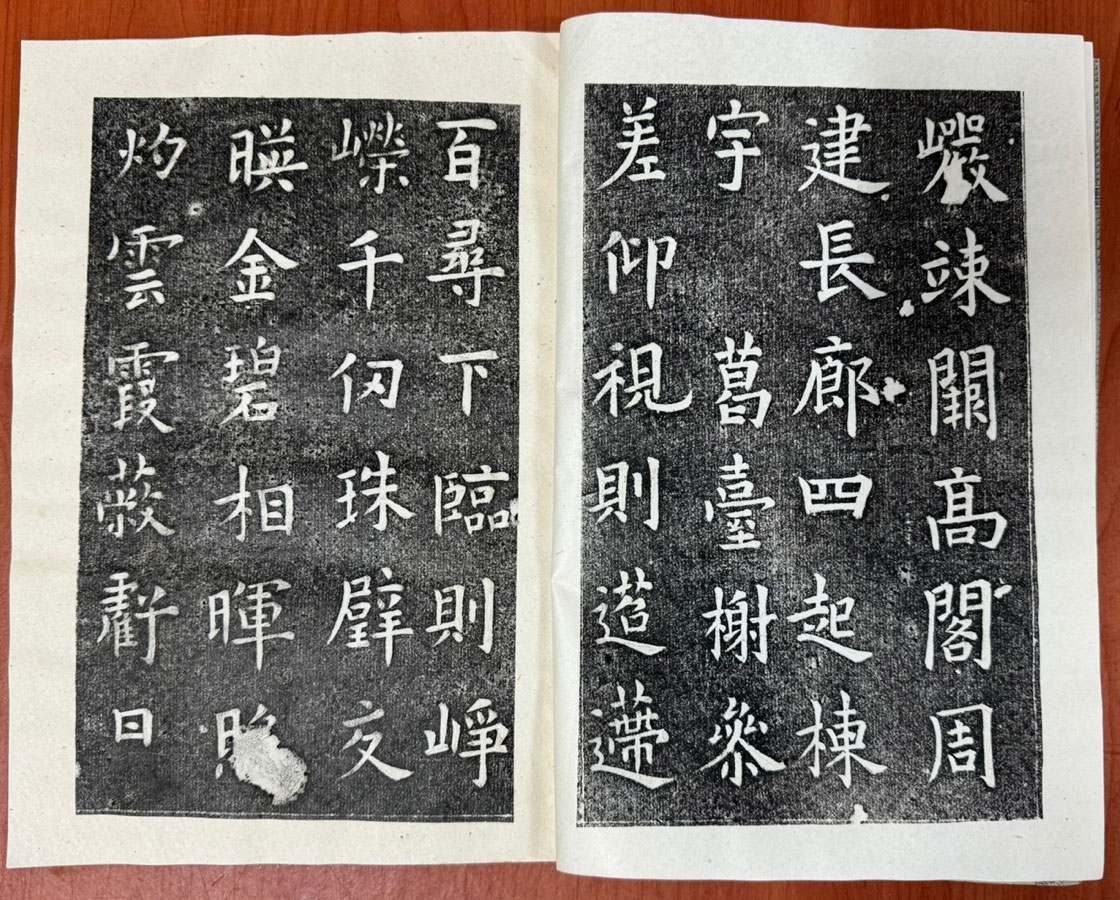 巖竦闕高閣周
建長廊四起棟
宇葛臺榭參
差仰視則迢遰
百尋下臨則崢
嶸千仞珠璧交
暎金碧相暉照
灼雲霞蔽虧日